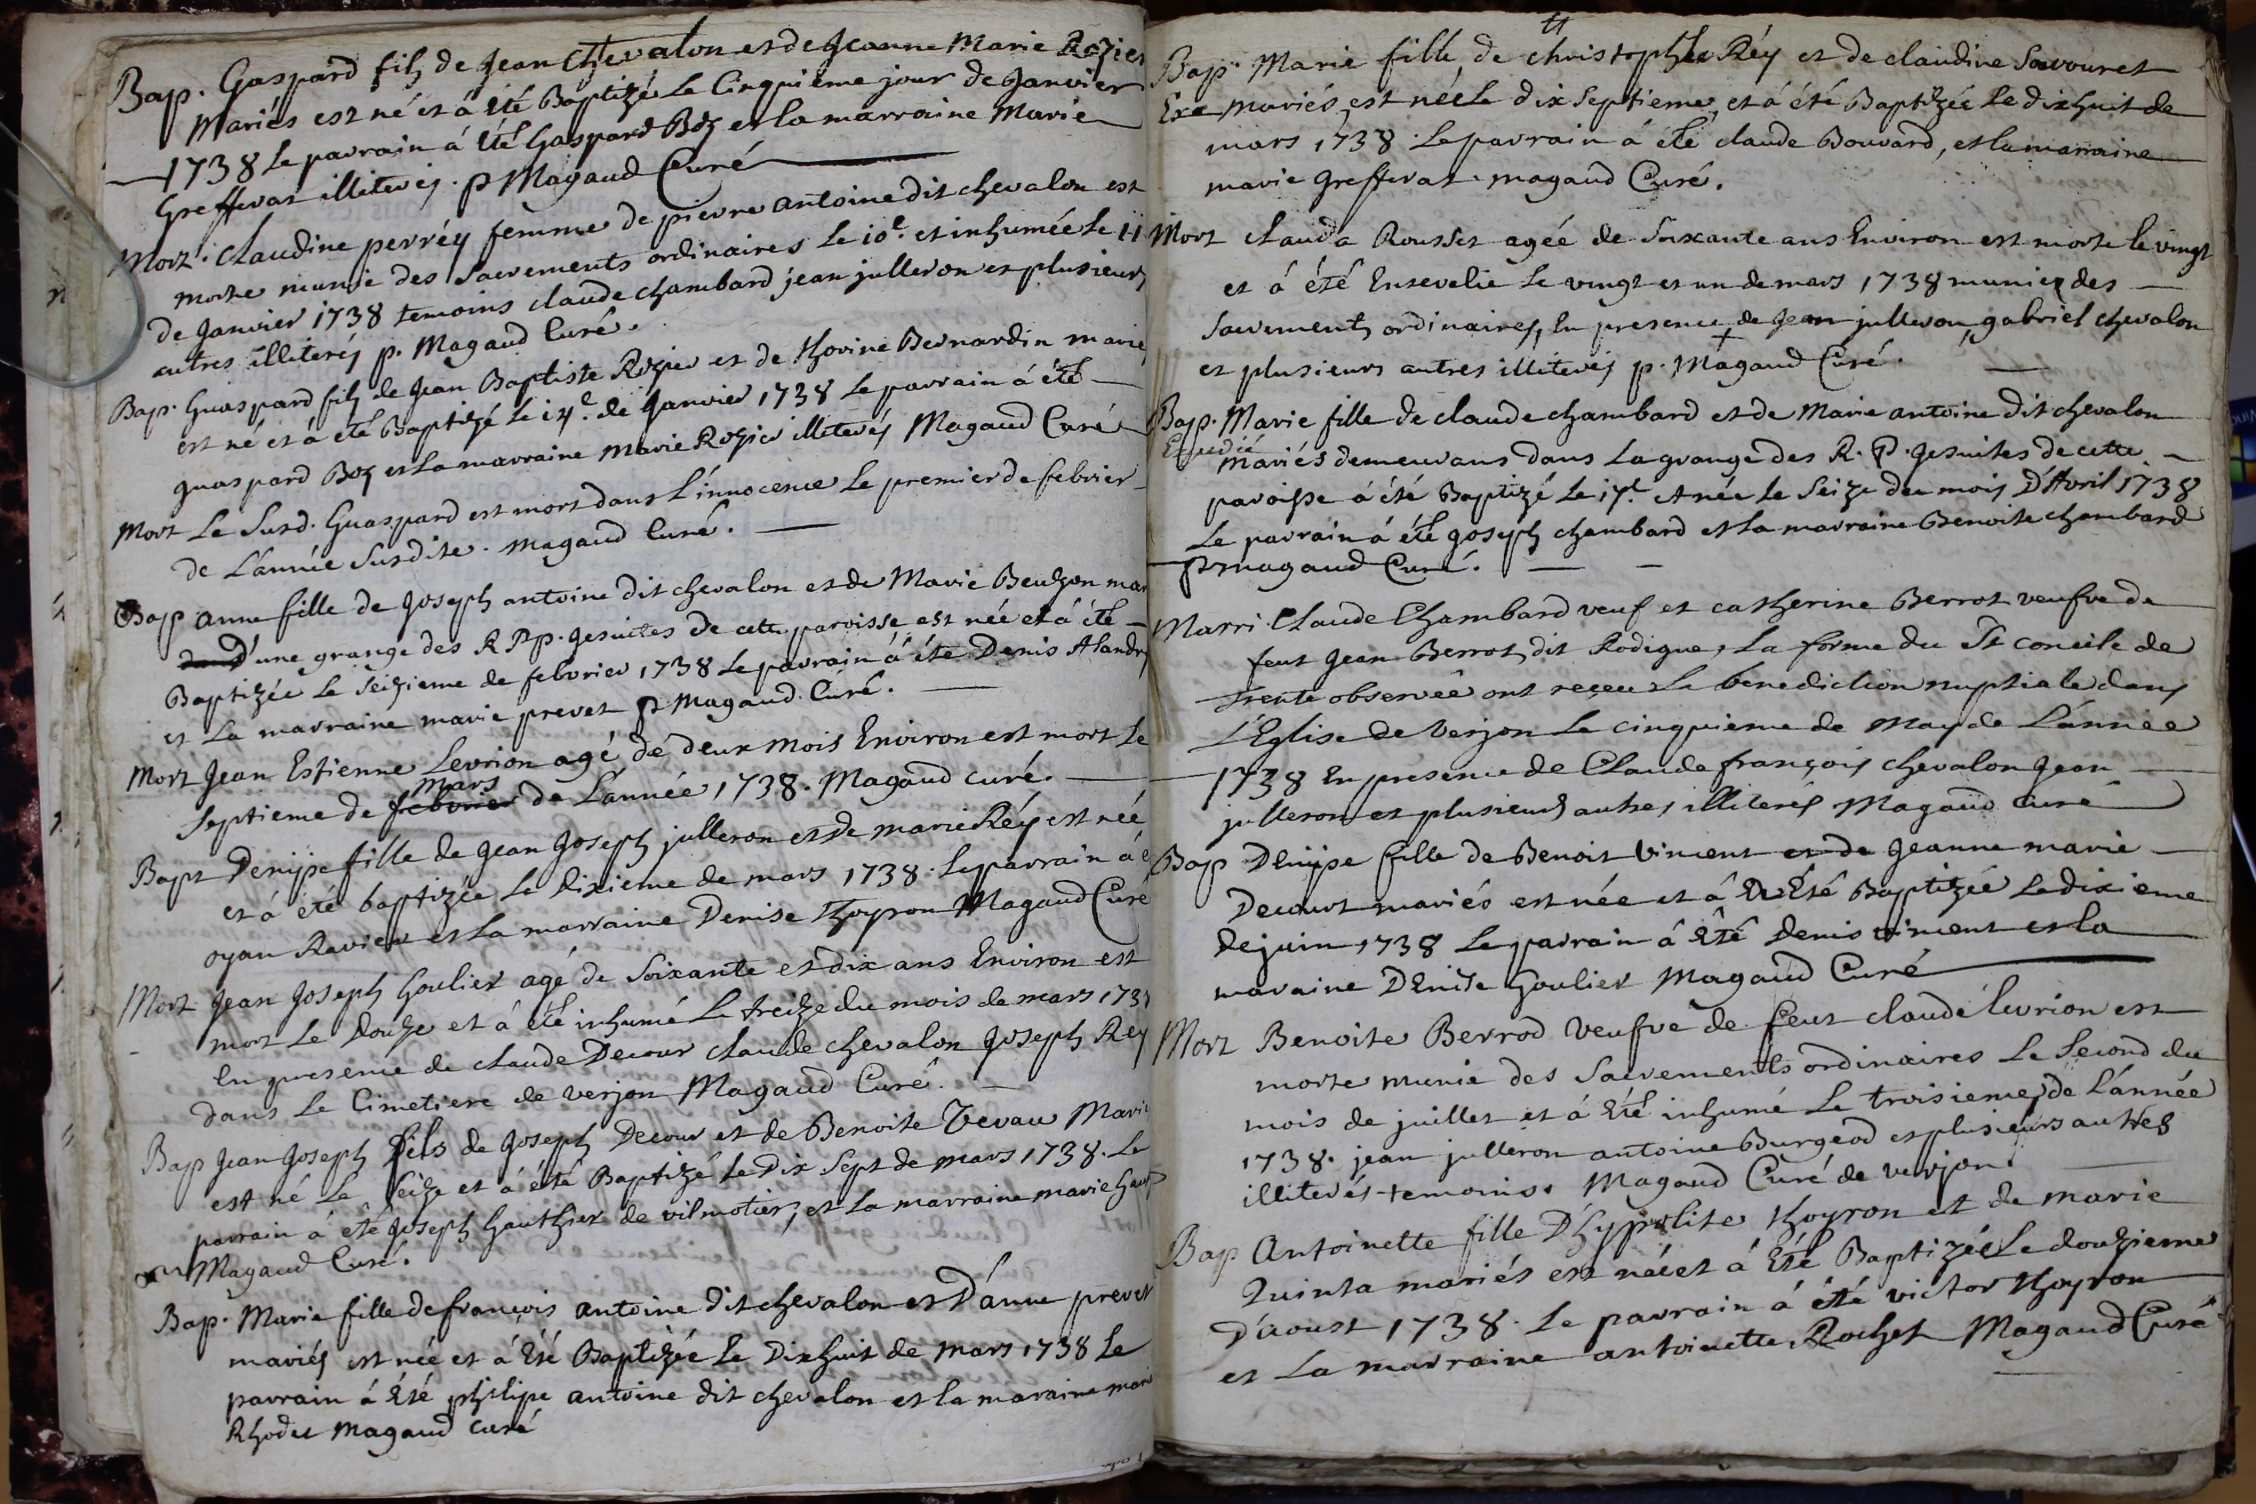 Bap. Gaspard filz de Jean Chevalon et de Jeanne Marie Rozier
Mariés est né et à Eté Baptizé Le Cinquieme jour de Janvier
1738 Le parrain à Eté Gaspard Boz et la marraine Marie
Greffevat illiterés. p Magaud Curé
Mort. Claudine perréy femme de pierre antoine dit chevalon est
morte munie des Sacrements ordinaires Le 10e. et inhumée Le 11
de Janvier 1738 temoins claude chambard jean julleron et plusieurs
autres illiterés p. Magaud Curé.
Bap. Guaspard filz de Jean Baptiste Rozier et de thorine Bernardin mariés
est né et à eté Baptizé le 14e. de Janvier 1738 Le parrain à été
guaspard Boz et la marraine Marie Rozier illiterés Magaud Curé
Mort Le Susd. Guaspard est mort dans L'innocence Le premier de febvrier
de L'année Susdite. Magaud Curé.
Bap anne fille de Joseph antoine dit chevalon et de Marie Beulzon mar
D'une grange des R Pp. Jesuites de cette paroisse est née et à été
Baptizée Le Seizieme de febvrier 1738 Le parrain à éte Denis Alandry
et La marraine marie prevet p Magaud. Curé.
Mort Jean Estienne Levrion agé de deux mois Environ est mort Le
mars
Septieme de febvrier de L'année 1738. Magaud curé.
Bapt Denise fille de Jean Joseph julleron et de marie Réy est née
et à été baptizée Le Dixieme de mars 1738. Le parrain à é
oyan Ravier et La marraine Denise Thoyron Magaud Curé
Mort Jean Joseph Goulier agé de Soixante et dix ans Environ est
mort Le Douze et à été inhumé Le treize du mois de mars 1738
En presence de claude Decour claude chevalon Joseph Rey
dans Le Cimetiere de verjon Magaud Curé.
Bap Jean Joseph Fils de Joseph Decour et de Benoite Tevau Marié
est né Le Seize et à été Baptizé Le Dix Sept de mars 1738. Le
parrain à été Joseph Gauthier de vilmotier, et La marraine marie Gaut
Magaud Curé.
Bap. Marie fille de françois antoine dit chevalon et D'anne prevet
mariés est née et à Eté Baptizée Le Dixhuit de mars 1738 Le
parrain à Eté philipe antoine dit chevalon et la maraine mari
Rhodet Magaud curé
Bap. Marie fille de christophle Réy et de claudine Savouret
mariés est née Le dix Septieme et à été Baptizée Le dixhuit de
mars 1738. Le parrain à été claude Bouvard, et la marraine
marie Greffevat. Magaud Curé.
Mort clauda Rousset agée de Soixante ans Environ est morte le vingt
et à été Ensevelie Le vingt et un de mars 1738 munie des
Sacrements ordinaires, En presence de Jean julleron, gabriel chevalon
et plusieurs autres illiterés p. Magaud Curé.
Bap. Marie fille de claude chambard et de Marie antoine dit chevalon
Expedié
mariés demeurans dans La grange des R. P. Jesuites de cette
paroisse à été Baptizé Le 17e. et née Le Seize du mois D'Avril 1738
Le parrain à été Joseph chambard et La marraine Benoite chambard
p magaud Curé.
Marri. Claude Chambard veuf et catherine Berrot veufve de
feut Jean Berrot dit Rodigue, La forme du St concile de
Trente observée ont reçeu La benediction nuptiale dans
L'Eglise de Verjon Le cinquieme de May de L'année
1738 En presence de Claude françois chevalon Jean
julleron et plusieurs autres illiterés Magaud Curé
Bap Denise fille de Benoit Vincent et de Jeanne marie
Decourt mariés est née et à Eté Baptizée Le dixieme
de juin 1738 Le parrain à Eté Denis vincent et la
maraine Denise Goulier Magaud Curé
Mort Benoite Berrod Veufve de feut claude levrion est
morte munie des Sacrements ordinaires Le Second du
mois de juillet et à Eté inhumé Le troisieme de L'année
1738. jean julleron antoine Burgeod et plusieurs autres
illiterés temoins. Magaud Curé de verjon.
Bap Antoinette fille D'hypolite thoyron et de marie
Quinta mariés est née et à Eté Baptizée Le douzieme
D'aoust 1738. Le parrain à été victor thoyron
et La marraine antoinette Rochet Magaud Curé